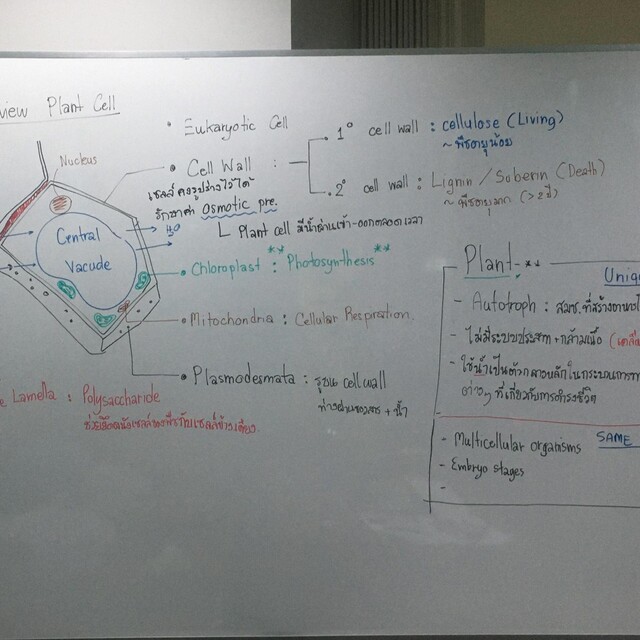 view Plant Cell
Nucleus
Central
Vacude
H₂O
• Eukaryotic Cell
• Cell Wall :
1° cell wall : cellulose (Living)
~ พืชอายุน้อย
2° cell wall : Lignin / Soberin (Death)
~ พืชอายุมาก (>2ปี)
เซลล์คงรูปร่างไว้ได้
รักษาค่า osmotic pre.
Plant cell มีน้ำผ่านเข้า-ออกตลอดเวลา
• Chloroplast : Photosynthesis **
• Mitochondria : Cellular Respiration.
• Plasmodesmata : รูบน cell wall
+ น้ำ
e Lamella : Polysaccharide
Plant **
Uniq
- Autotroph : สมช. ที่สร้างอาหาร
- ไม่มีระบบประสาท + กล้ามเนื้อ
- ใช้น้ำเป็นตัวกลางหลักในกระบวนการ
ต่างๆ ที่เกี่ยวกับการดำรงชีวิต
- Multicellular organisms SAME
- Embryo stages
-